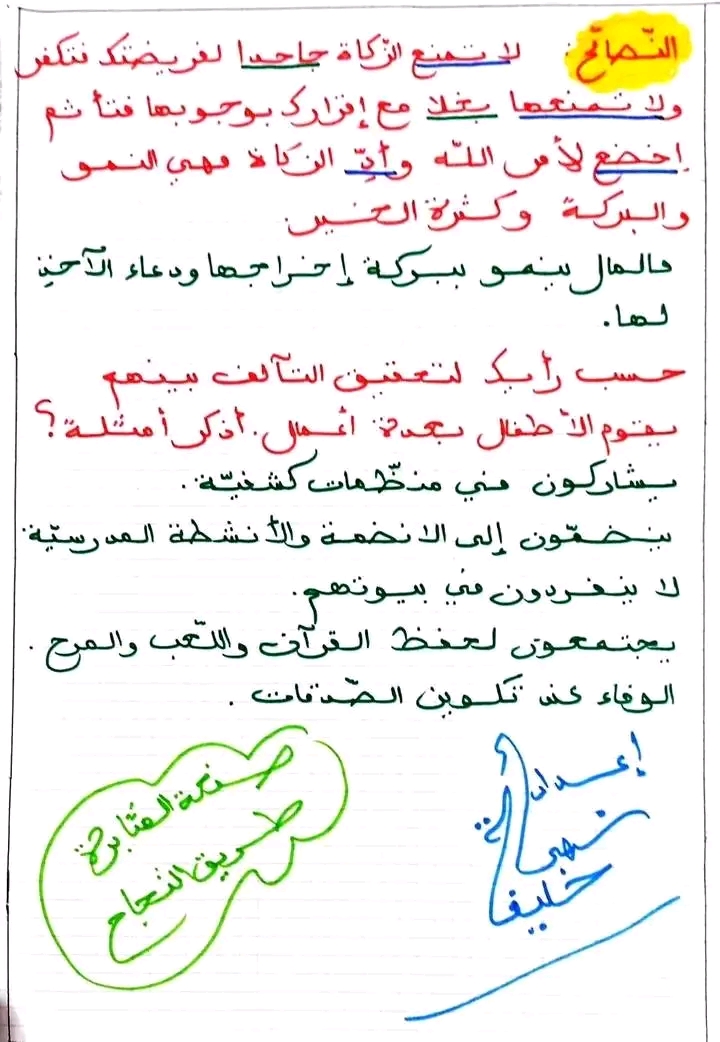 النّصائح: لا تمنع الزّكاة جاحدا لفريضتك فتكفر
ولا تمنعها بخلا مع إقرارك بوجوبها فتأثم
إخضع لأمر اللّه وأدِّ الزكاة فهي النمو
والبركة وكثرة الخير
فالمال ينمو ببركة إخراجها ودعاء الآخذ
لها.
حسب رأيك لتحقيق التآلف بينهم
يقوم الأطفال بعدة أعمال. أذكر أمثلة؟
يشاركون في منظّمات كشفيّة.
ينضمّون إلى الانخمة والأنشطة المدرسيّة
لا ينفردون في بيوتهم.
يجتمعون لحفظ القرآن واللّعب والمرح.
الوفاء عند تكوين الصّدقات.
إعداد
خليفة
صنعة المثابرة
طريق النجاح